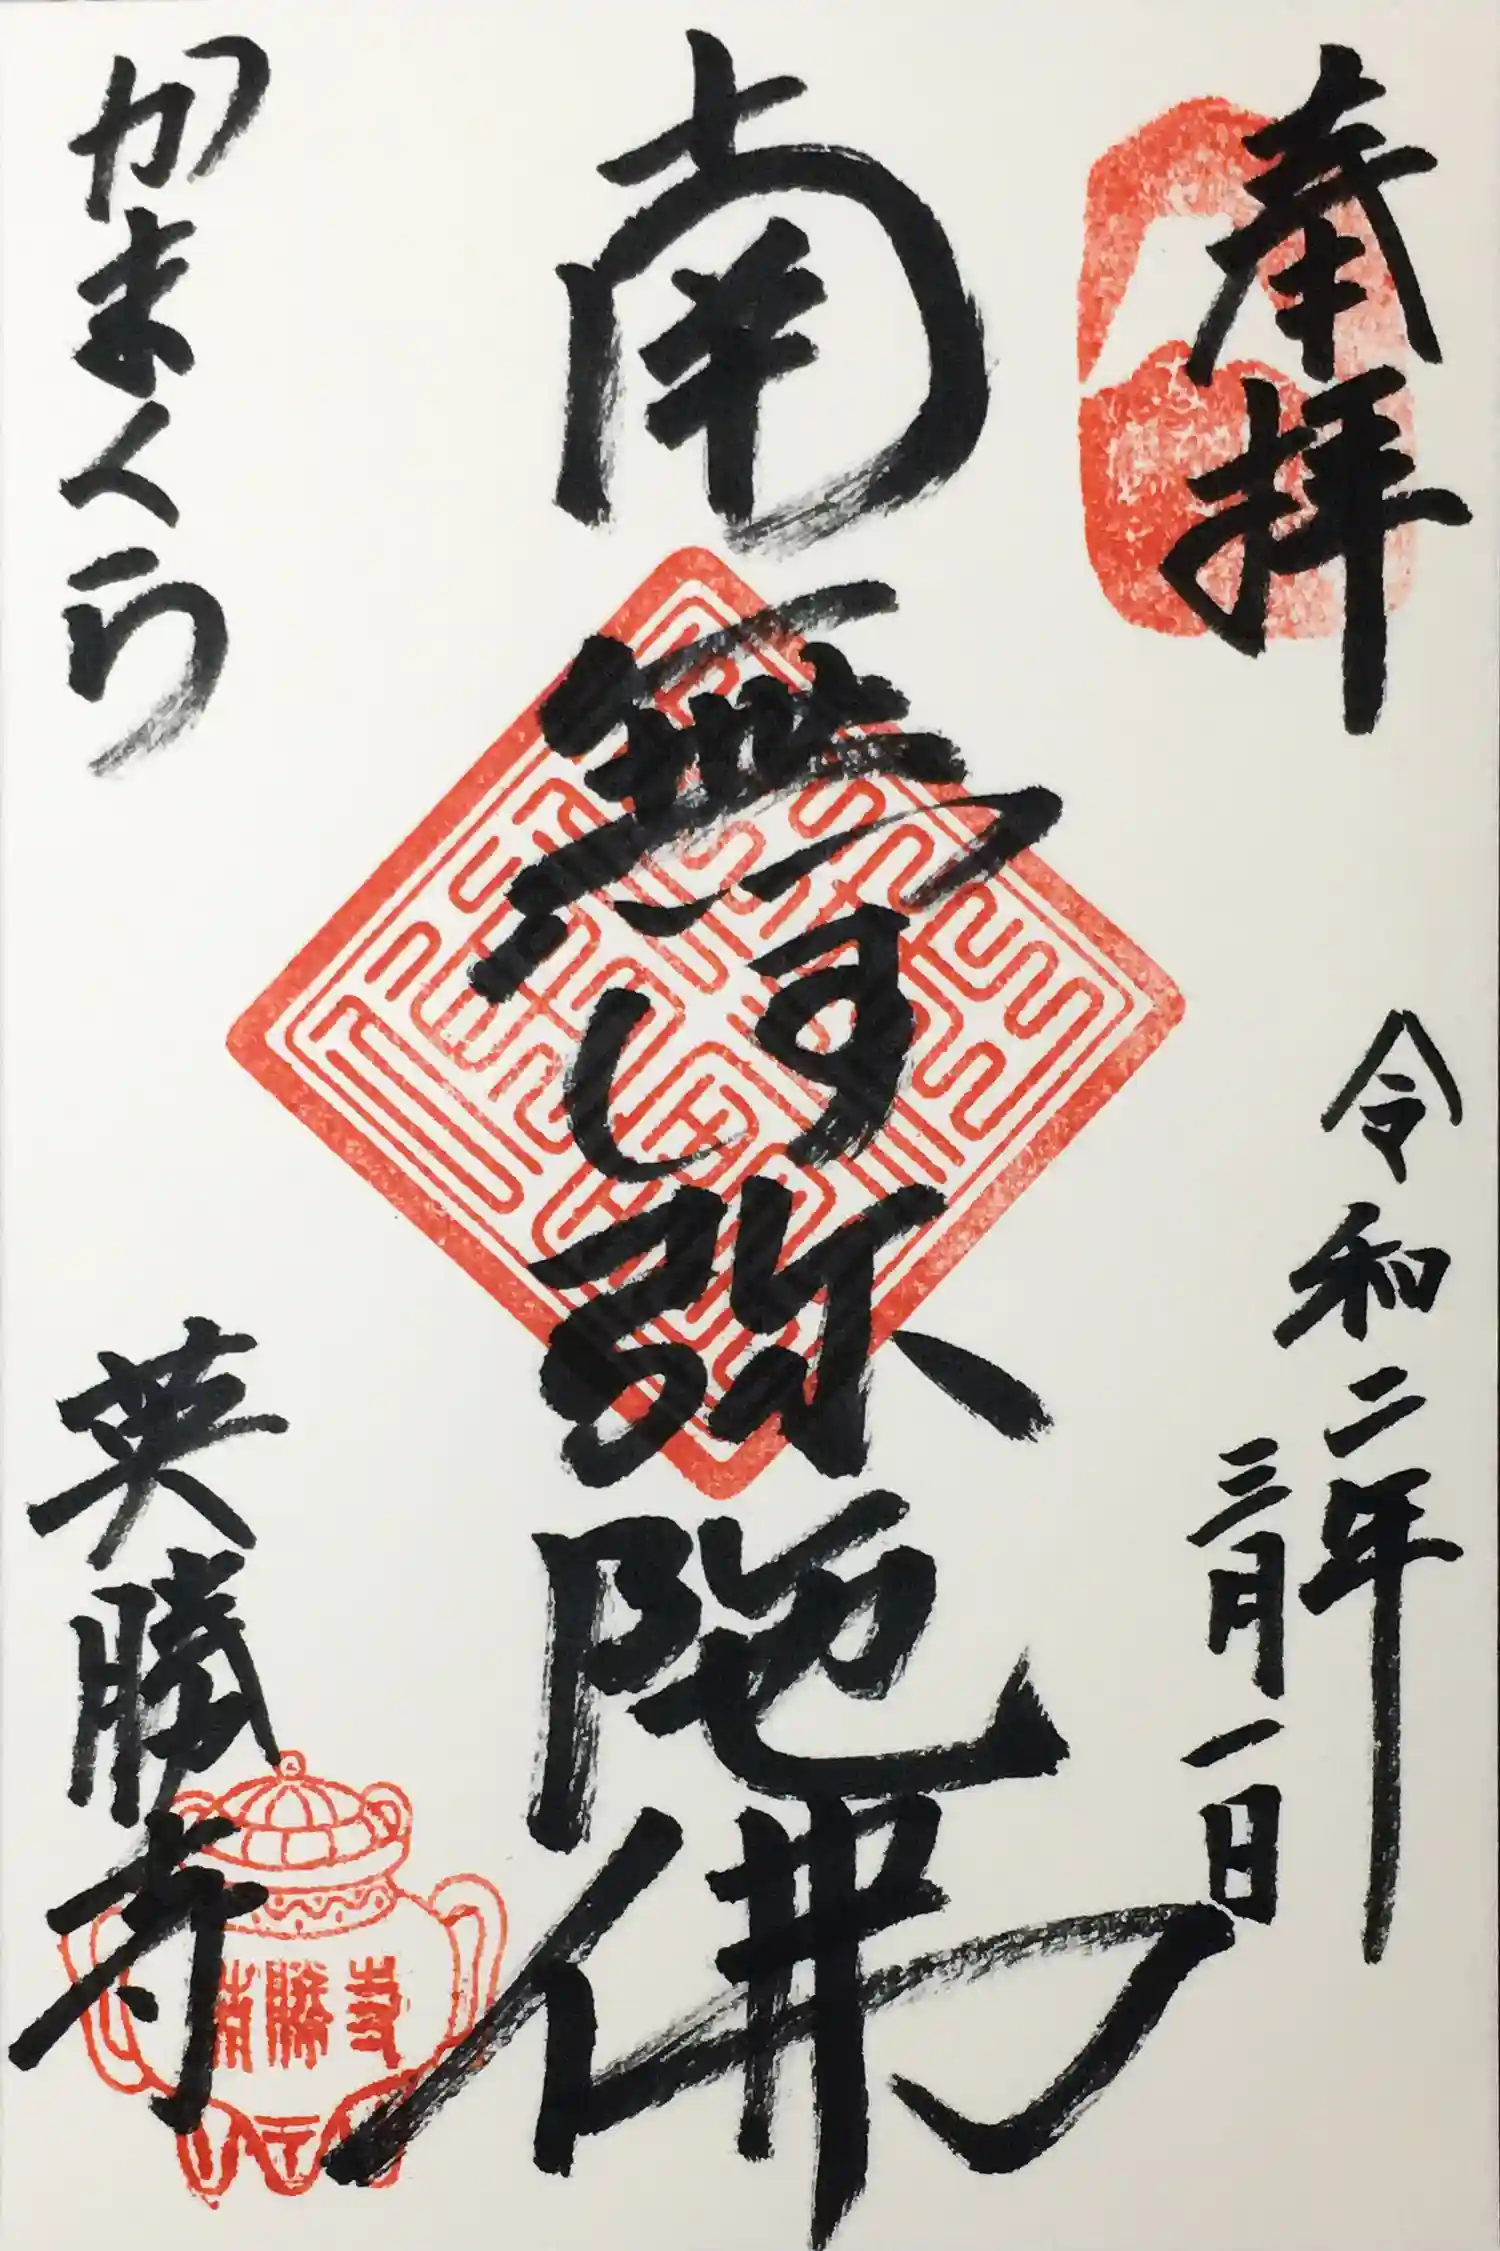 奉拝
令和二年
三月一日
南無阿弥陀佛
かまくら
英勝寺
英勝寺